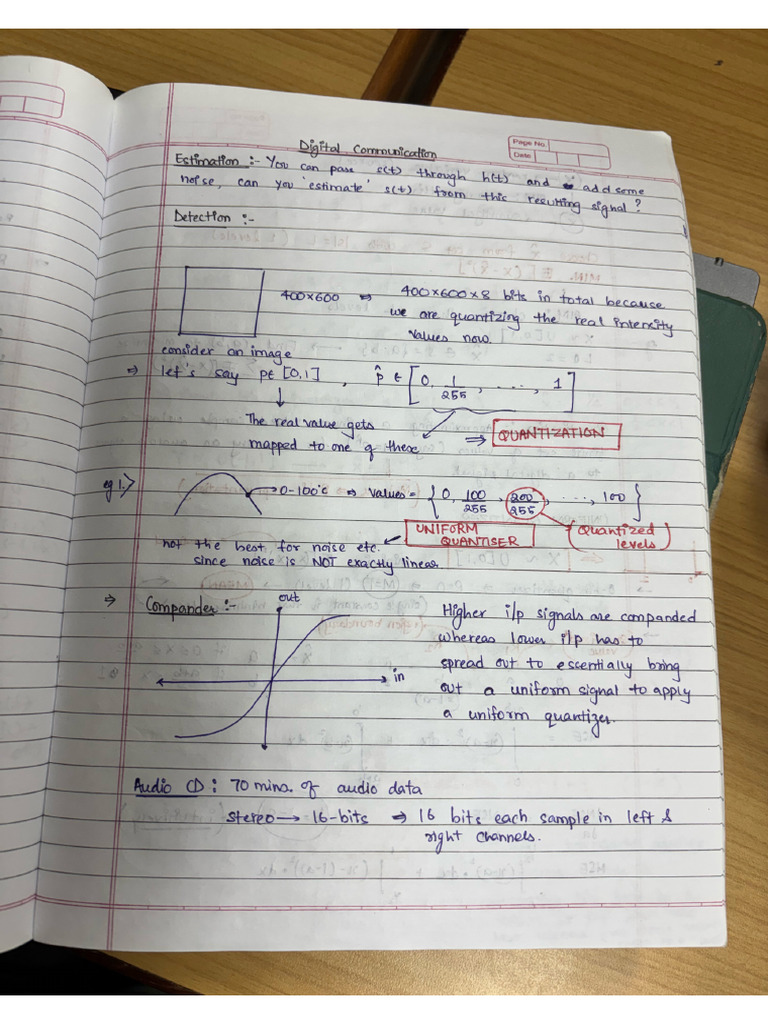 Page No.
Date
Digital Communication
Estimation :- You can pass s(t) through h(t) and add some
noise, can you 'estimate' s(t) from this resulting signal?
Detection :-
400×600 ⇒ 400×600×8 bits in total because
we are quantizing the real intensity
values now.
consider an image
⇒ let's say p∈[0,1] , p̂ ∈ [0, 1/255, ..., 1]
The real value gets
mapped to one of these ⇒ QUANTIZATION
eg 1.> → 0-100°C ⇒ values = {0, 100/255, 200/255, ..., 100}
UNIFORM QUANTISER
(Quantized levels)
not the best for noise etc.
since noise is NOT exactly linear
⇒ Compander :-
out
in
Higher i/p signals are companded
whereas lower i/p has to
spread out to essentially bring
out a uniform signal to apply
a uniform quantizer.
Audio CD : 70 mins. of audio data
stereo → 16-bits ⇒ 16 bits each sample in left &
right channels.